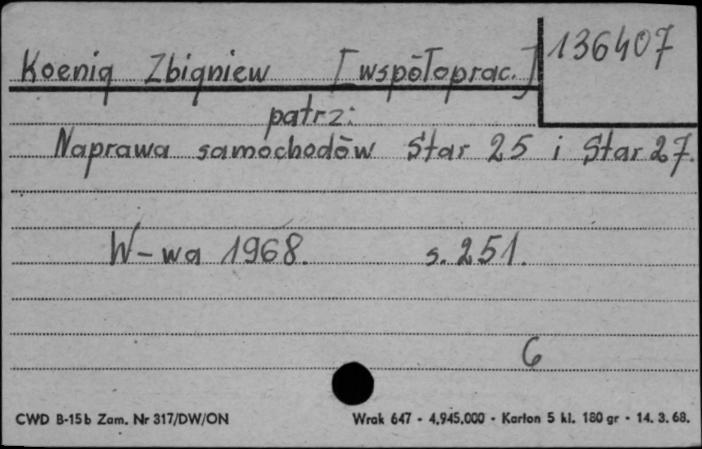 Koenig Zbigniew [współoprac.] 136407
patrz:
Naprawa samochodów Star 25 i Star 27.
W-wa 1968. s. 251.
6
CWD B-15b Zam. Nr 317/DW/ON Wrak 647 - 4,945,000 - Karton 5 kl. 180 gr - 14. 3. 68.